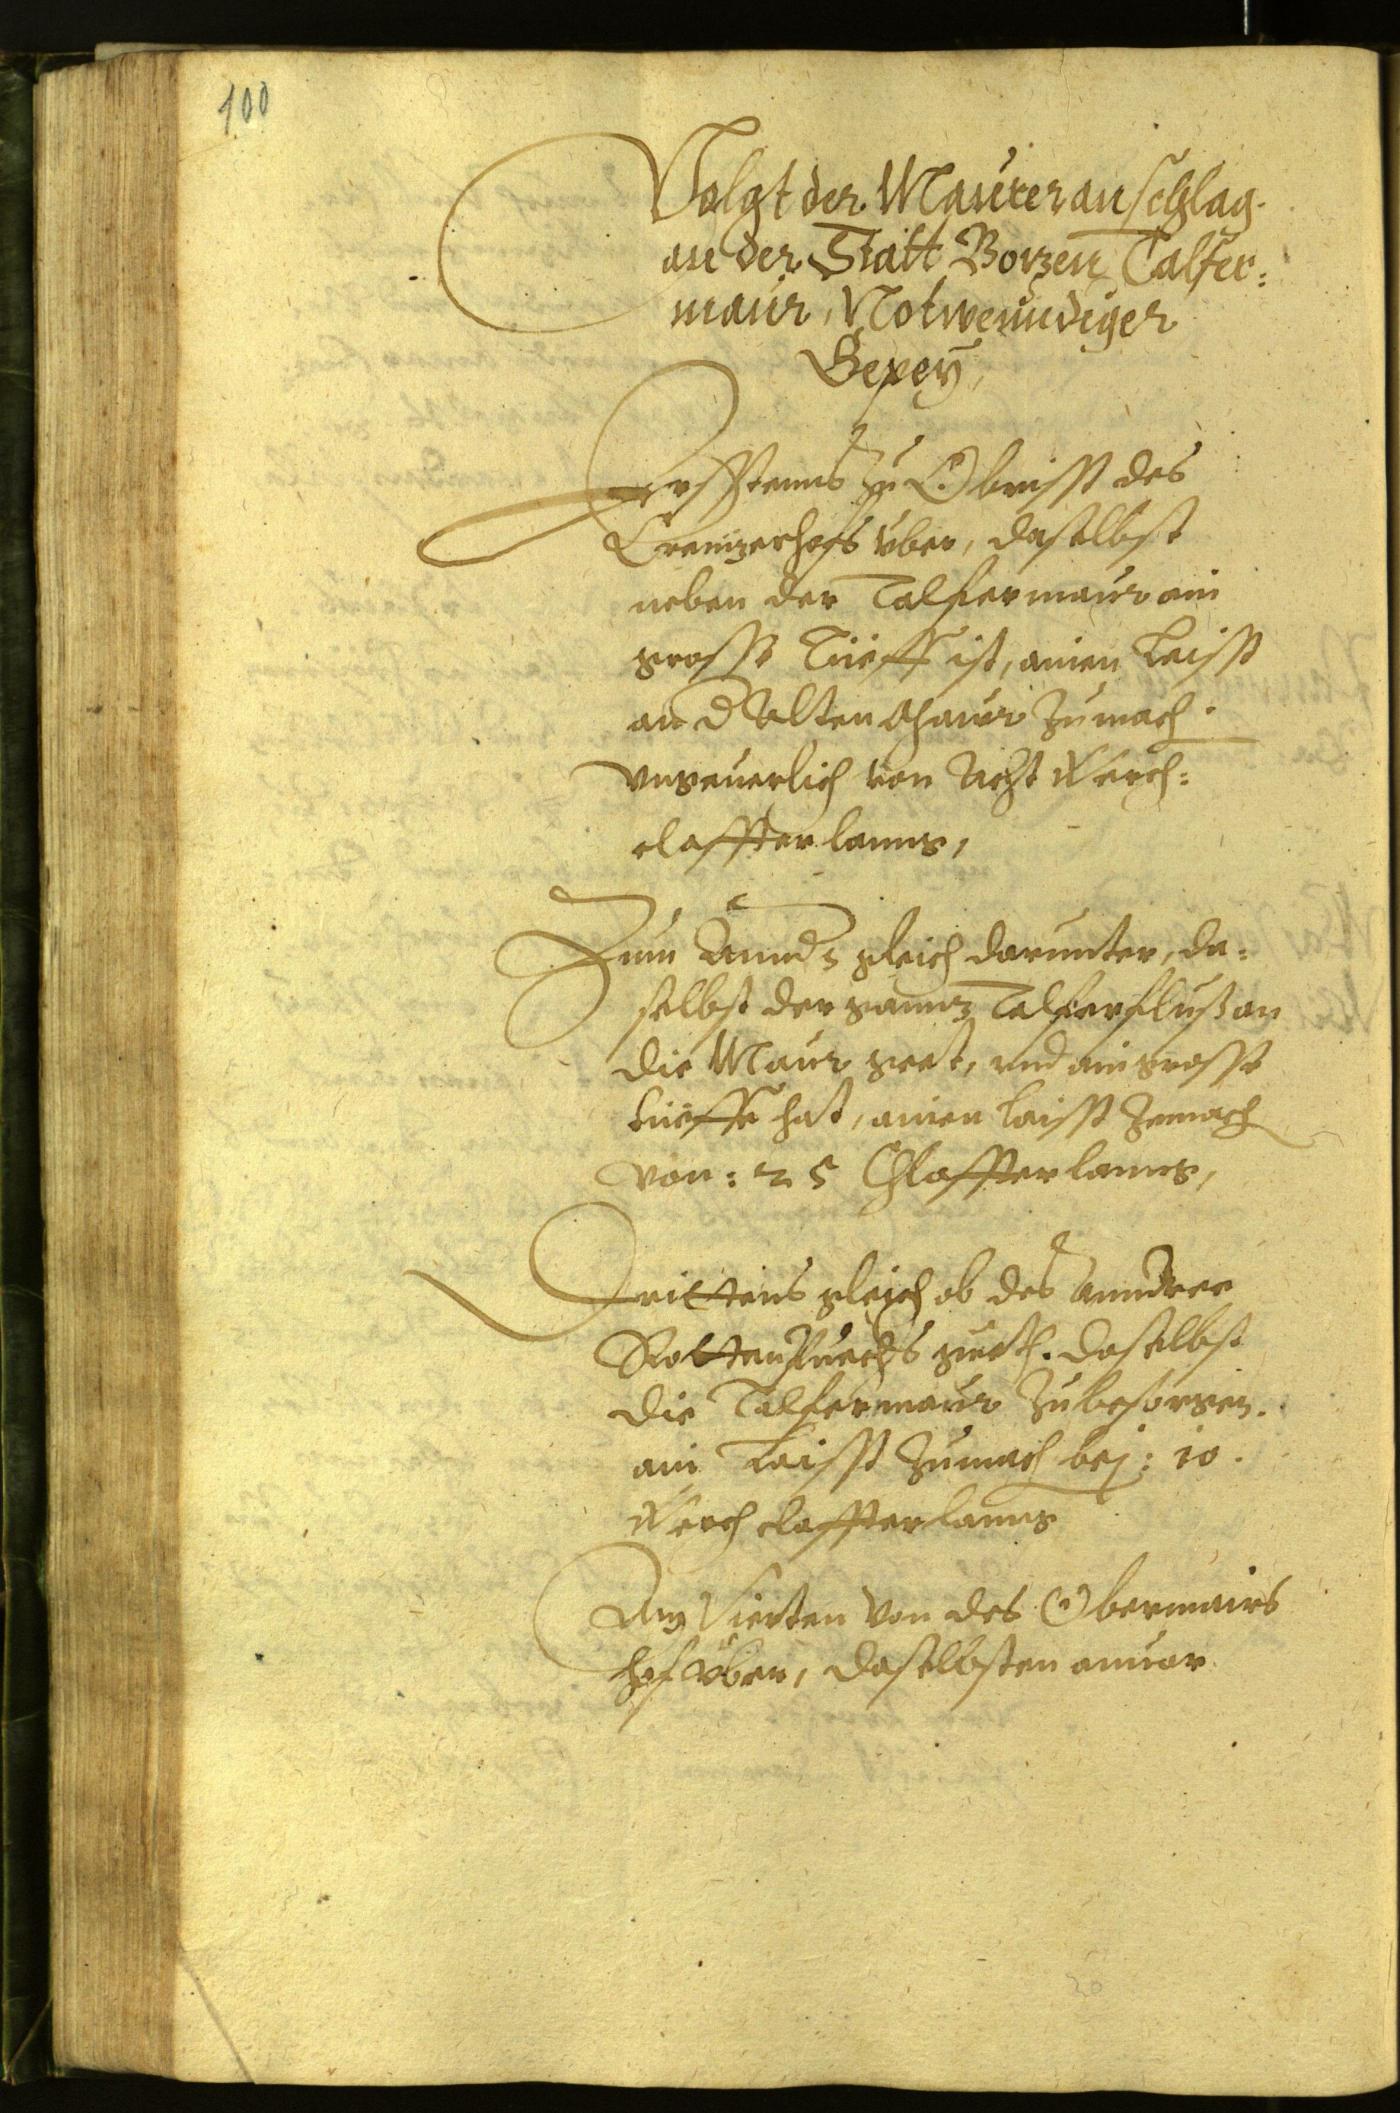 100
Volgt der Maurer anschlag
an der Statt Bozen Talfer:
maur, Notwenndiger
Gepey,
Erstenns zu Obrisst des
Creuzerhofs vber, daselbst
neben der Talfermaur ain
grosse Tüeff ist, ainen Leisst
an d Alten Maur zumach.
vngeuerlich von Acht Werch:
claffter lanng,
Zum Annd gleich darunter, da:
selbst der gannz Talferfluß an
die Maur geet, vnd ain grosse
tüeffe hat, ainen laisst zemach
von: 25 Chlaffter lanng,
Drittens gleich ob des Anndree
Rottenpuechs gueth. daselbst
die Talfermaur zubesorgen.
ain Laisst zumach bej: 10.
Werch claffter lanng
Am Vierten von des Obermairs
hof vber, daselbsten
20